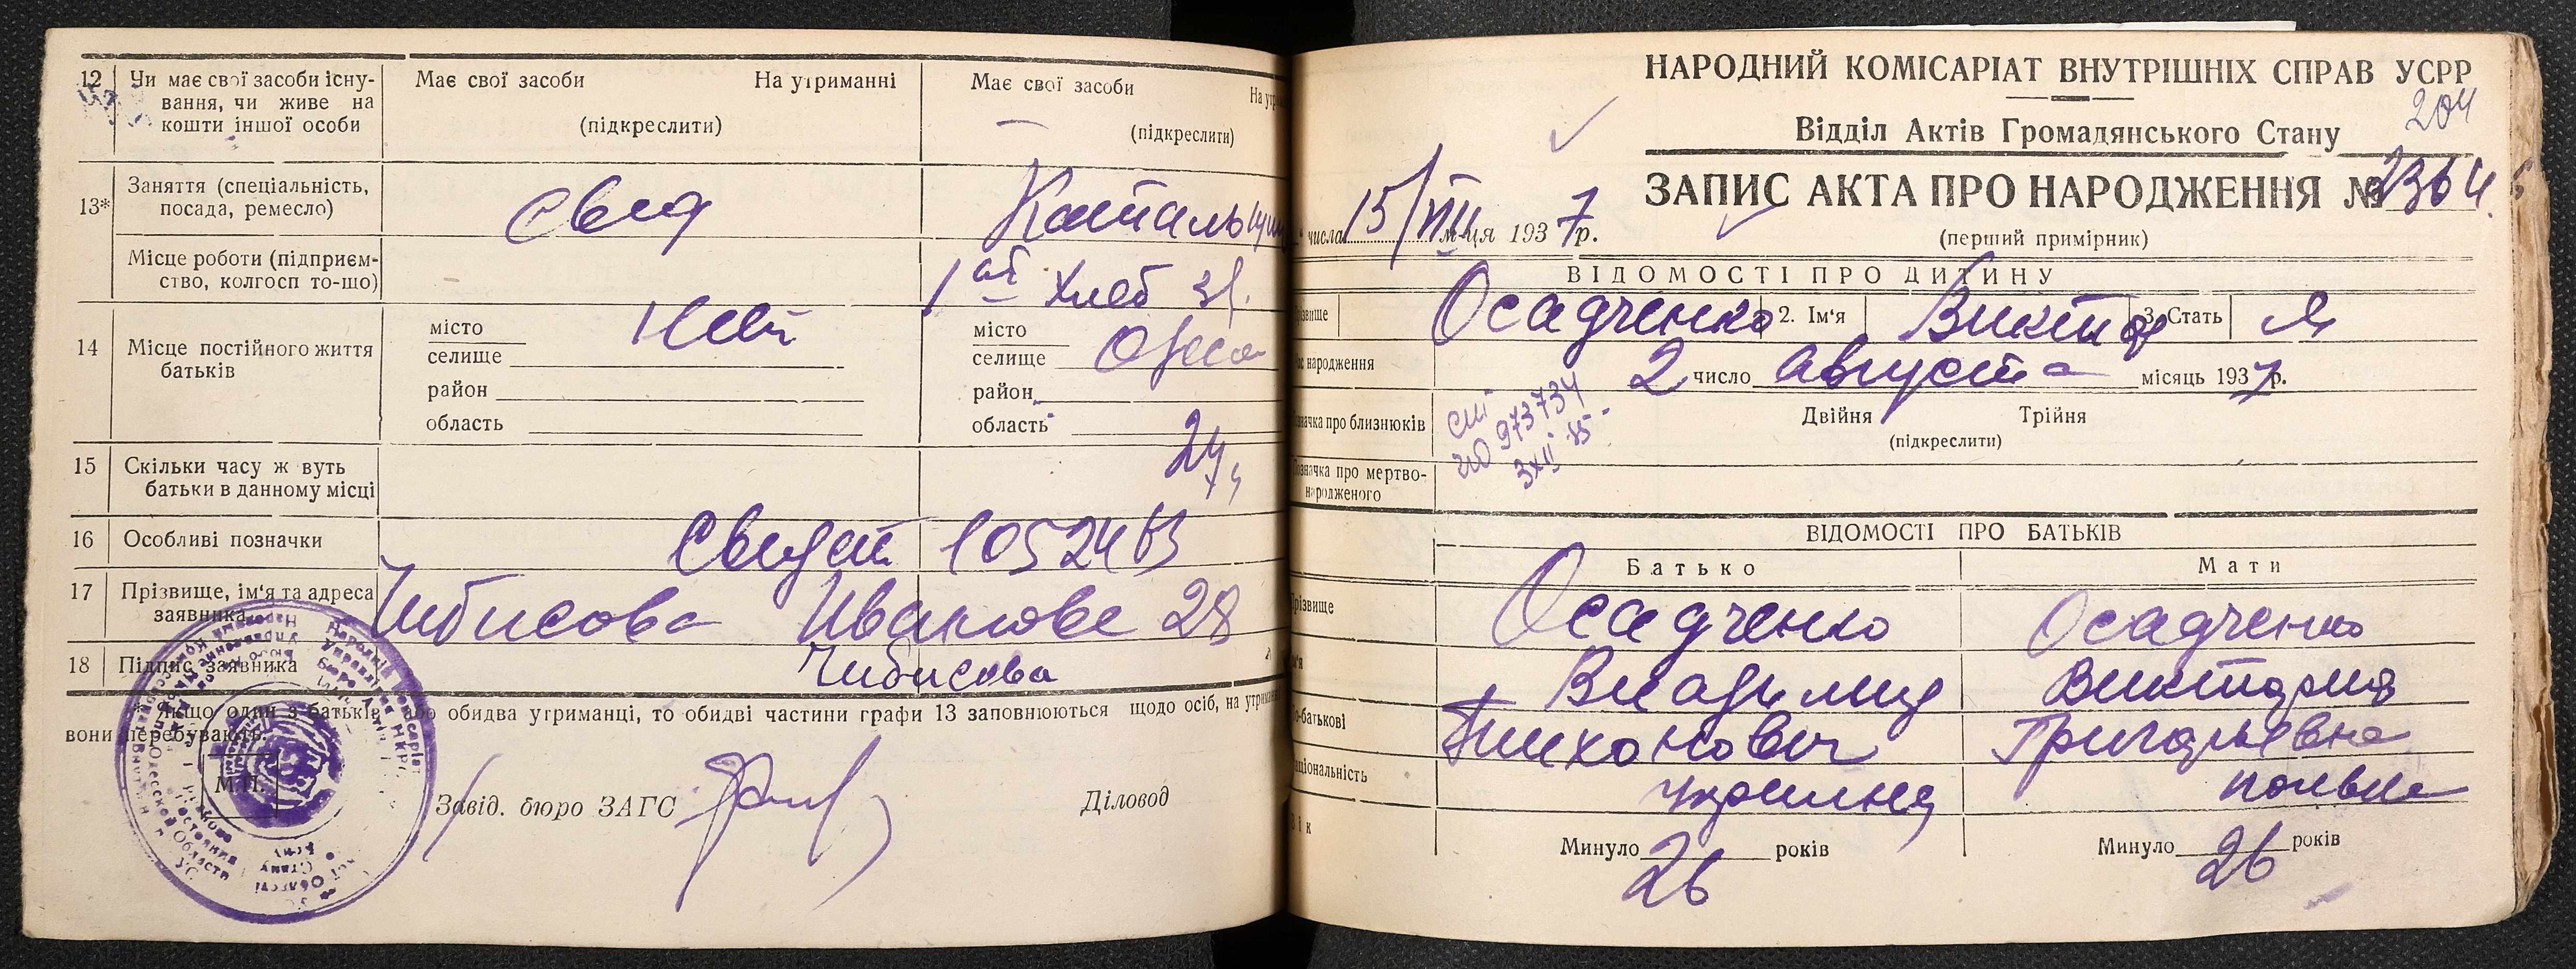 12 Чи має свої засоби існування, чи живе на кошти іншої особи
Має свої засоби На утриманні
(підкреслити)
Має свої засоби
(підкреслити)
13* Заняття (спеціальність, посада, ремесло)
Місце роботи (підприємство, колгосп то-що)
1ый хлеб
14 Місце постійного життя батьків
місто
селище
район
область
місто
селище Одеса
район
область
15 Скільки часу ж вуть батьки в данному місці
24
16 Особливі позначки
17 Прізвище, ім'я та адреса заявника
Чибисова 28
18 Підпис заявника Чибисова
* Якщо один з батьків або обидва утриманці, то обидві частини графи 13 заповнюються щодо осіб, на
вони перебувають.
М.П.
Завід. бюро ЗАГС
Діловод
НАРОДНИЙ КОМІСАРІАТ ВНУТРІШНІХ СПРАВ УСРР
204
Відділ Актів Громадянського Стану
ЗАПИС АКТА ПРО НАРОДЖЕННЯ № 2364
числа 15/VIII м-ця 1937 р.
(перший примірник)
ВІДОМОСТІ ПРО ДИТИНУ
Осадченко 2. Ім'я Виктор 3. Стать
народження 2 число августа місяць 1937 р.
про близнюків Двійня Трійня
(підкреслити)
973734
про мертво-
народженого
ВІДОМОСТІ ПРО БАТЬКІВ
Батько Мати
Осадченко Осадченко
Владимир Виктория
Тихонович Григорьевна
украинец полька
Минуло 26 років Минуло 26 років